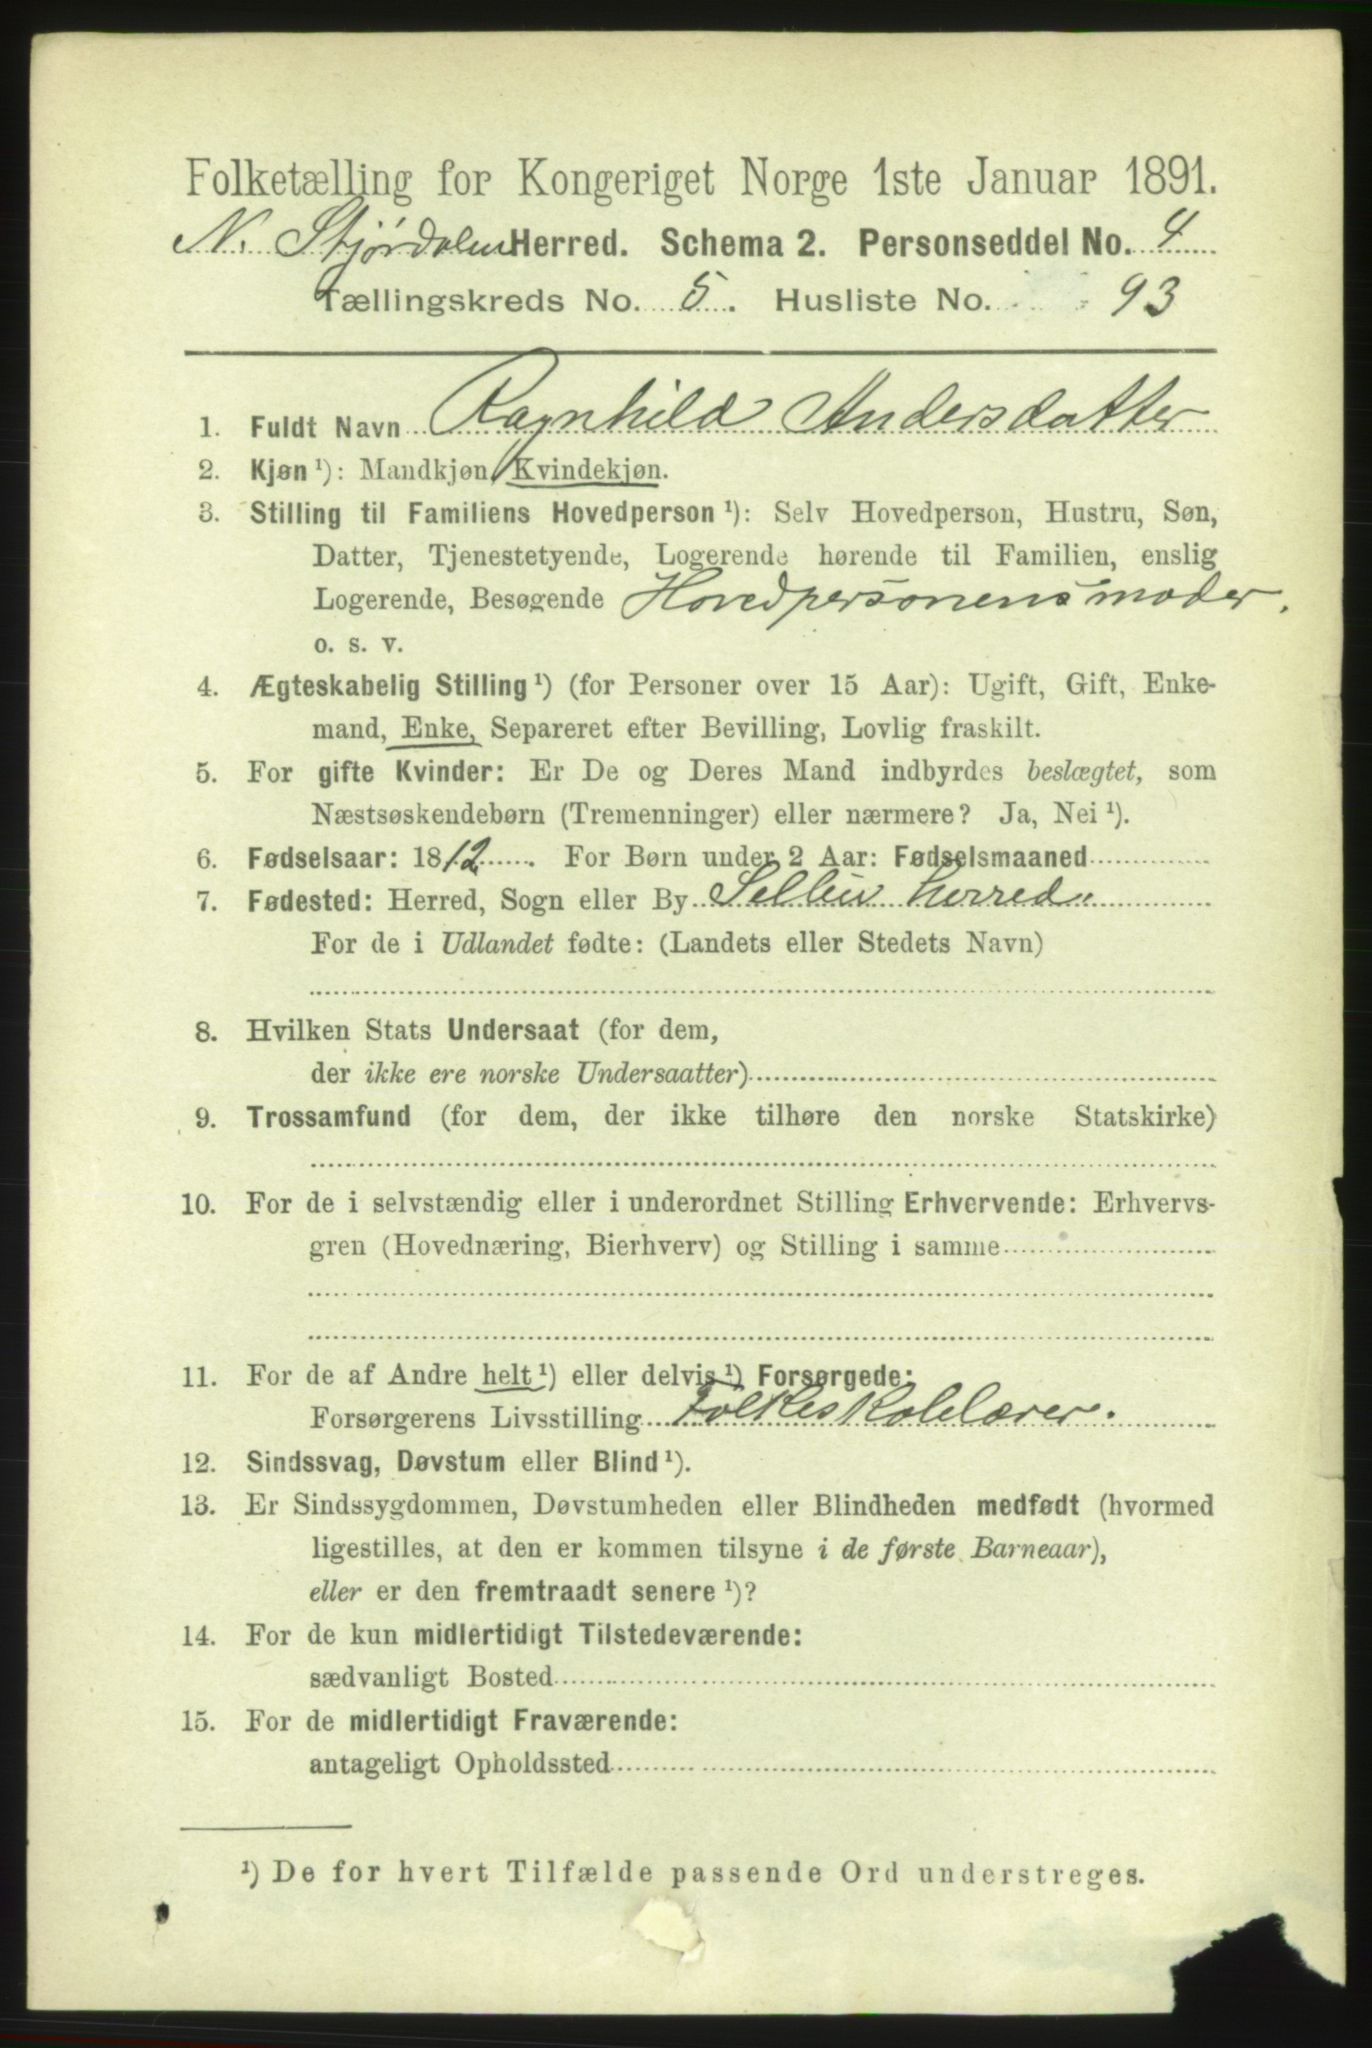 Folketælling for Kongeriget Norge 1ste Januar 1891.
N. Stjørdalen Herred. Schema 2. Personseddel No. 4
Tællingskreds No. 5. Husliste No. 93
1. Fuldt Navn Ragnhild Andersdatter
2. Kjøn ¹): Mandkjøn, Kvindekjøn.
3. Stilling til Familiens Hovedperson ¹): Selv Hovedperson, Hustru, Søn,
Datter, Tjenestetyende, Logerende hørende til Familien, enslig
Logerende, Besøgende Hovedpersonens moder.
o. s. v.
4. Ægteskabelig Stilling ¹) (for Personer over 15 Aar): Ugift, Gift, Enke-
mand, Enke, Separeret efter Bevilling, Lovlig fraskilt.
5. For gifte Kvinder: Er De og Deres Mand indbyrdes beslægtet, som
Næstsøskendebørn (Tremenninger) eller nærmere? Ja, Nei ¹).
6. Fødselsaar: 1812. For Børn under 2 Aar: Fødselsmaaned
7. Fødested: Herred, Sogn eller By Selbu herred.
For de i Udlandet fødte: (Landets eller Stedets Navn)
8. Hvilken Stats Undersaat (for dem,
der ikke ere norske Undersaatter)
9. Trossamfund (for dem, der ikke tilhøre den norske Statskirke)
10. For de i selvstændig eller i underordnet Stilling Erhvervende: Erhvervs-
gren (Hovednæring, Bierhverv) og Stilling i samme
11. For de af Andre helt ¹) eller delvis ¹) Forsørgede:
Forsørgerens Livsstilling Folkeskolelærer.
12. Sindssvag, Døvstum eller Blind ¹).
13. Er Sindssygdommen, Døvstumheden eller Blindheden medfødt (hvormed
ligestilles, at den er kommen tilsyne i de første Barneaar),
eller er den fremtraadt senere ¹)?
14. For de kun midlertidigt Tilstedeværende:
sædvanligt Bosted
15. For de midlertidigt Fraværende:
antageligt Opholdssted
¹) De for hvert Tilfælde passende Ord understreges.